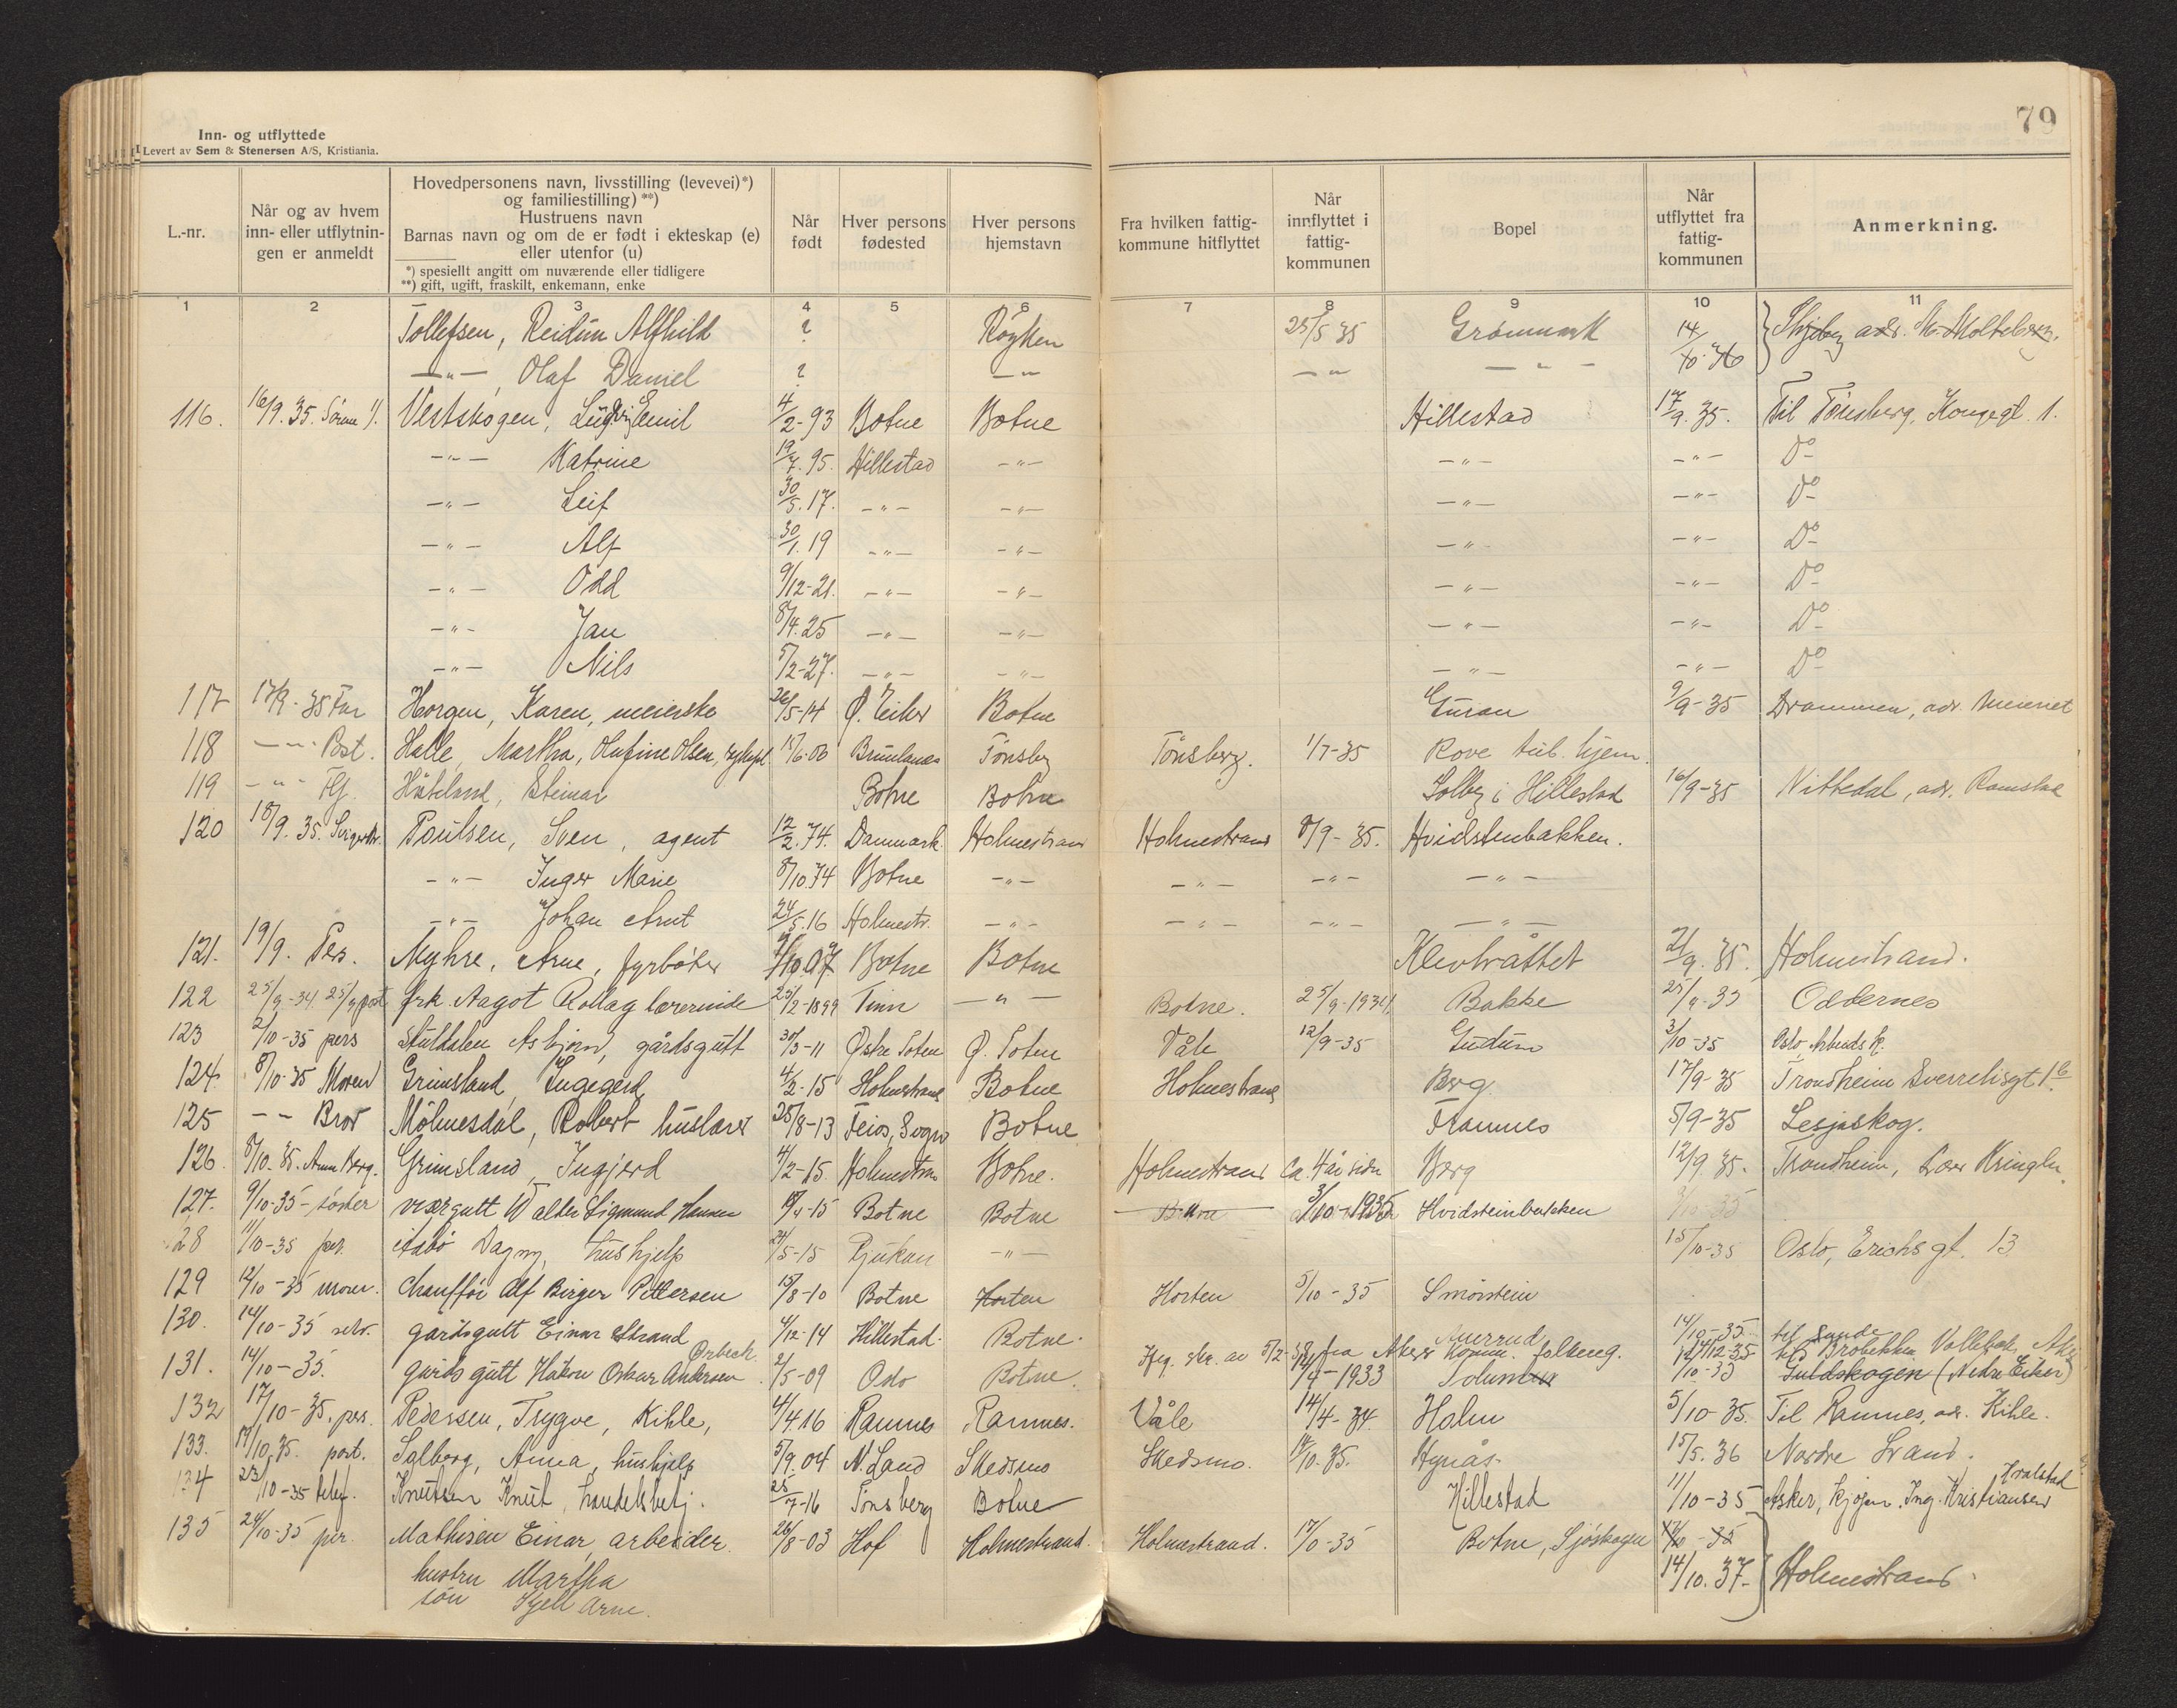 79
Inn- og utflyttede
Levert av Sem & Stenersen A/S, Kristiania.
L.-nr.
Når og av hvem inn- eller utflytnin- gen er anmeldt
Hovedpersonens navn, livsstilling (levevei)*)
og familiestilling) **)
Hustruens navn
Barnas navn og om de er født i ekteskap (e)
eller utenfor (u)
*) spesiellt angitt om nuværende eller tidligere
**) gift, ugift, fraskilt, enkemann, enke
Når født
Hver persons fødested
Hver persons hjemstavn
Fra hvilken fattig- kommune hitflyttet
Når innflyttet i fattig- kommunen
Bopel
Når utflyttet fra fattig- kommunen
Anmerkning.
1 2 3 4 5 6 7 8 9 10 11
Tollefsen, Reidun Alfhild ? Røyken 25/5 35 14/10-36
—"— , Olaf Daniel ? —"— —"— —"—
116. 16/9. 35. Vestskogen, Ludvig Emil 4/2-93 Botne Botne Hillestad 17/9. 35. Til Tønsberg, Kongegt. 1.
—"— Katrine 19/7. 95. Hillestad —"— —"— —"— Do
—"— Leif 30/5. 17. —"— —"— —"— —"— Do
—"— Alf 30/1. 19 —"— —"— —"— —"— Do
—"— Odd 9/12-21. —"— —"— —"— —"— Do
—"— Jan 8/4. 25 —"— —"— —"— —"— Do
—"— Nils 5/2-27. —"— —"— —"— —"— Do
117 17/9-35 Far Horgen, Karen, meierske 26/5-14 Ø. Eiker Botne 9/9-35 Drammen, adr. Meieriet
118 —"— Post. Halle, Martha, Olufine Olsen, 17/6-00 Brunlanes Tønsberg Tønsberg. 1/7-35 Rove tub. hjem.
119 —"— Steinar Botne Botne Solby i Hillestad 16/9-35 Nittedal, adr.
120 18/9. 35. Poulsen, Sven, agent 12/2. 74. Danmark. Holmestrand Holmestrand 8/9-35. Hvidstenbakken.
—"— Inger Marie 8/10. 74 Botne —"— —"— —"— —"—
—"— Johan Arnt 24/5. 16 Holmestr. —"— —"— —"— —"—
121. 19/9. Pers. Myhre, Arne, fyrbøter 07 Botne Botne 21/9. 35. Holmestrand.
122 25/9-34 25/9 post frk. Aagot Rollag lærerinde 25/2-1899 Tinn —"— Botne. 25/9-1934 Bakke 25/9-35 Oddernes
123 2/10-35 pers Asbjørn, gårdsgutt 30/3-11 Østre Toten Ø. Toten Våle 12/9-35 Gudum 3/10-35
124. 8/10-35 Moren Grimsland, Ingegerd 4/2-15 Holmestrand Botne Holmestrand Berg 17/9-35 Trondheim
125 —"— Bror Mølmesdal, Robert huslærer 25/8-13 Feios, Sogn Botne Framnes 5/9-35 Lesjaskog.
126. 8/10. 35. Anna Berg. Grimsland, Ingjerd 4/2-15. Holmestrand Botne. Holmestrand Ca. 4 år siden Berg 12/9 35. Trondheim,
127. 9/10-35 - søster Walter Sigmund Hansen 15 Botne Botne Botne 3/10-1935 Hvidsteinbakken 35
128 11/10-35 per. Aabø Dagny, hushjelp 24/5-15 Rjukan —"— 15/10-35 Oslo, Erichs gt. 13
129 12/10-35 moren. Chauffør Alf Birger Pettersen 15/8-10 Botne Horten Horten 5/10-35 Smørstein
130. 14/10-35 selv. gårdsgutt Einar Strand 4/12-14 Hillestad. Botne. 14/10-35 til Sande
131. 14/10-35. gårdsgutt Håkon Oskar Andersen Ørbeck 2/5-09 Oslo Botne. 1/4-1933 /10-35 Guldskogen (Nedre Eiker)
132 17/10-35. pers. Pedersen, Trygve, Kihle, 4/4. 16 Ramnes Ramnes. Våle 14/4-34. Holm 5/10-35. Til Ramnes, adr. Kihle.
133. 35. post. Solberg, Anna, hushjelp 5/9. 04 N. Land Skedsmo Skedsmo. /10. 35. 15/5. 36 Nordre Land.
134 23/10-35 telef. Knutsen Knut, handelsbetj. 25/7-16 Tønsberg Botne Hillestad 11/10-35 Asker, Kjøpm. Ing. Kristiansen Hvalstad
135 24/10-35 per. Mathisen Einar, arbeider 26/8-03 Hof Holmestrand. Holmestrand. 17/10-35 Botne, Sjøskogen 17/10-35
hustru Martha 14/10. 37. Holmestrand.
søn Kjell Arne.